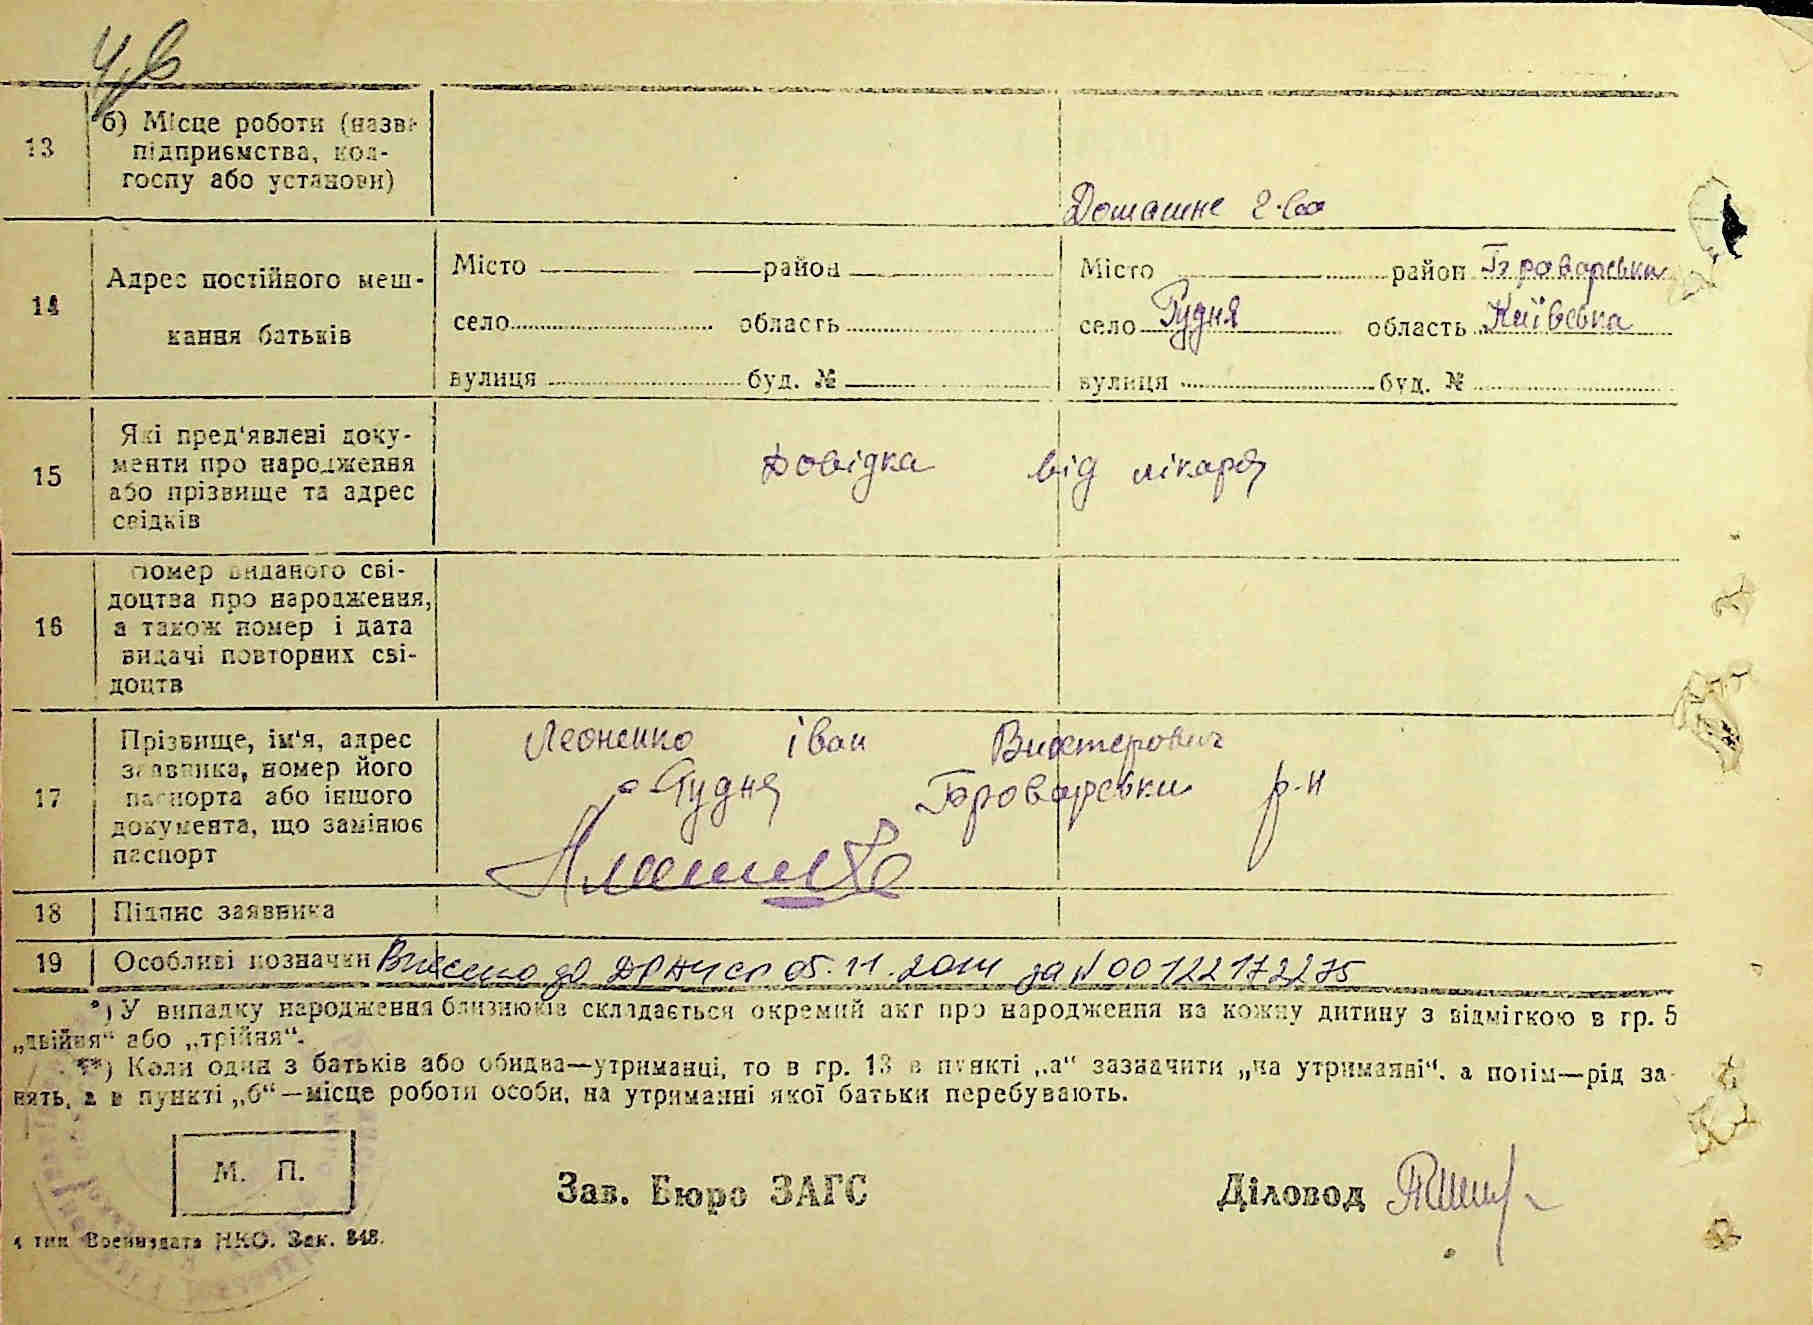 13 б) Місце роботи (назва
підприємства, кол-
госпу або установи)
Домашнє г-во
14 Адрес постійного меш-
кання батьків
Місто район Місто район Броварськи
село область село Рудня область Київська
вулиця буд. № вулиця буд. №
15 Які пред'явлені доку-
менти про народження
або прізвище та адрес
свідків
Довідка від лікаря
16 Номер виданого сві-
доцтва про народження,
а також номер і дата
видачі повторних сві-
доцтв
17 Прізвище, ім'я, адрес
заявника, номер його
паспорта або іншого
документа, що замінює
паспорт
Леоненко Іван
с Рудня Броварськи р-н
18 Підпис заявника
19 Особливі позначки Внесено до ДРАЦСГ 05.11.2014 за № 00122172275
*) У випадку народження близнюків складається окремий акт про народження на кожну дитину з відміткою в гр. 5
„двійня“ або „трійня“.
**) Коли один з батьків або обидва—утриманці, то в гр. 13 в пункті „а“ зазначити „на утриманні“, а потім—рід за-
нять, а в пункті „б“—місце роботи особи, на утриманні якої батьки перебувають.
М. П.
Зав. Бюро ЗАГС Діловод
4 тип Воениздата НКО. Зак. 848.